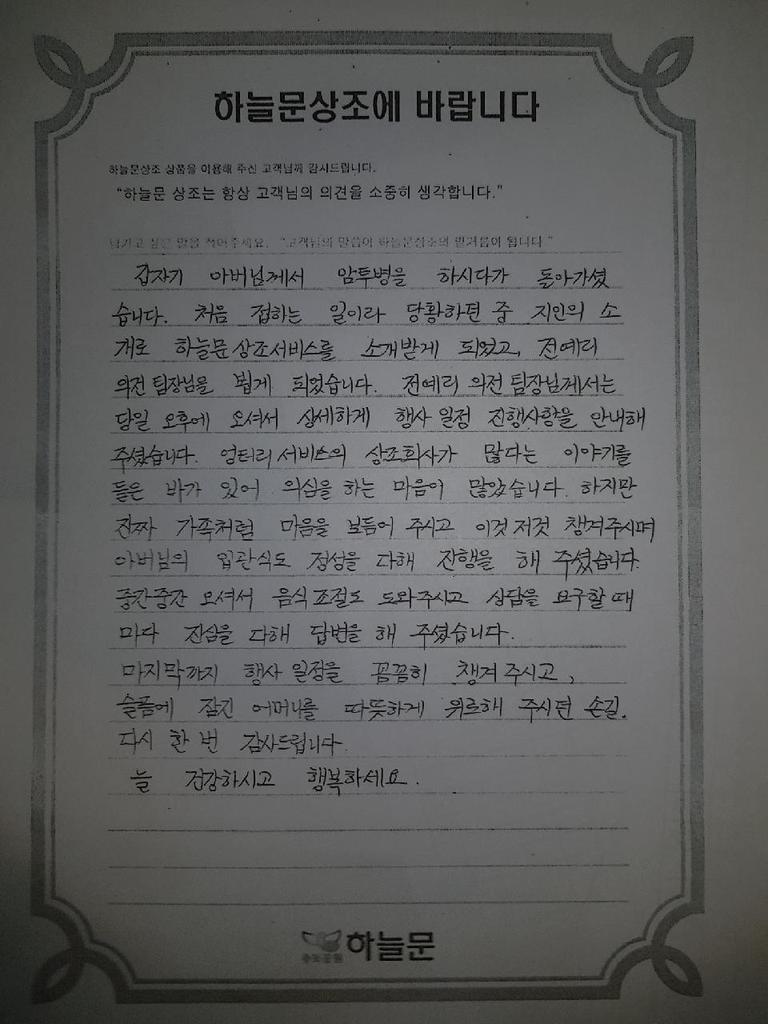 하늘문상조에 바랍니다
하늘문상조 상품을 이용해 주신 고객님께 감사드립니다.
"하늘문 상조는 항상 고객님의 의견을 소중히 생각합니다."
남기고 싶은 말을 적어주세요. "고객님의 말씀이 하늘문상조의 밑거름이 됩니다"
갑자기 아버님께서 암투병을 하시다가 돌아가셨
습니다. 처음 접하는 일이라 당황하던 중 지인의 소
개로 하늘문상조서비스를 소개받게 되었고, 전예리
의전 팀장님을 뵙게 되었습니다. 전예리 의전 팀장님께서는
당일 오후에 오셔서 상세하게 행사 일정 진행사항을 안내해
주셨습니다. 엉터리 서비스의 상조회사가 많다는 이야기를
들은 바가 있어 의심을 하는 마음이 많았습니다. 하지만
진짜 가족처럼 마음을 보듬어 주시고 이것저것 챙겨주시며
아버님의 입관식도 정성을 다해 진행을 해 주셨습니다.
중간중간 오셔서 음식조절도 도와주시고 상담을 요구할 때
마다 진심을 다해 답변을 해 주셨습니다.
마지막까지 행사 일정을 꼼꼼히 챙겨 주시고,
슬픔에 잠긴 어머니를 따뜻하게 위로해 주시던 손길.
다시 한 번 감사드립니다.
늘 건강하시고 행복하세요.
추모공원 하늘문